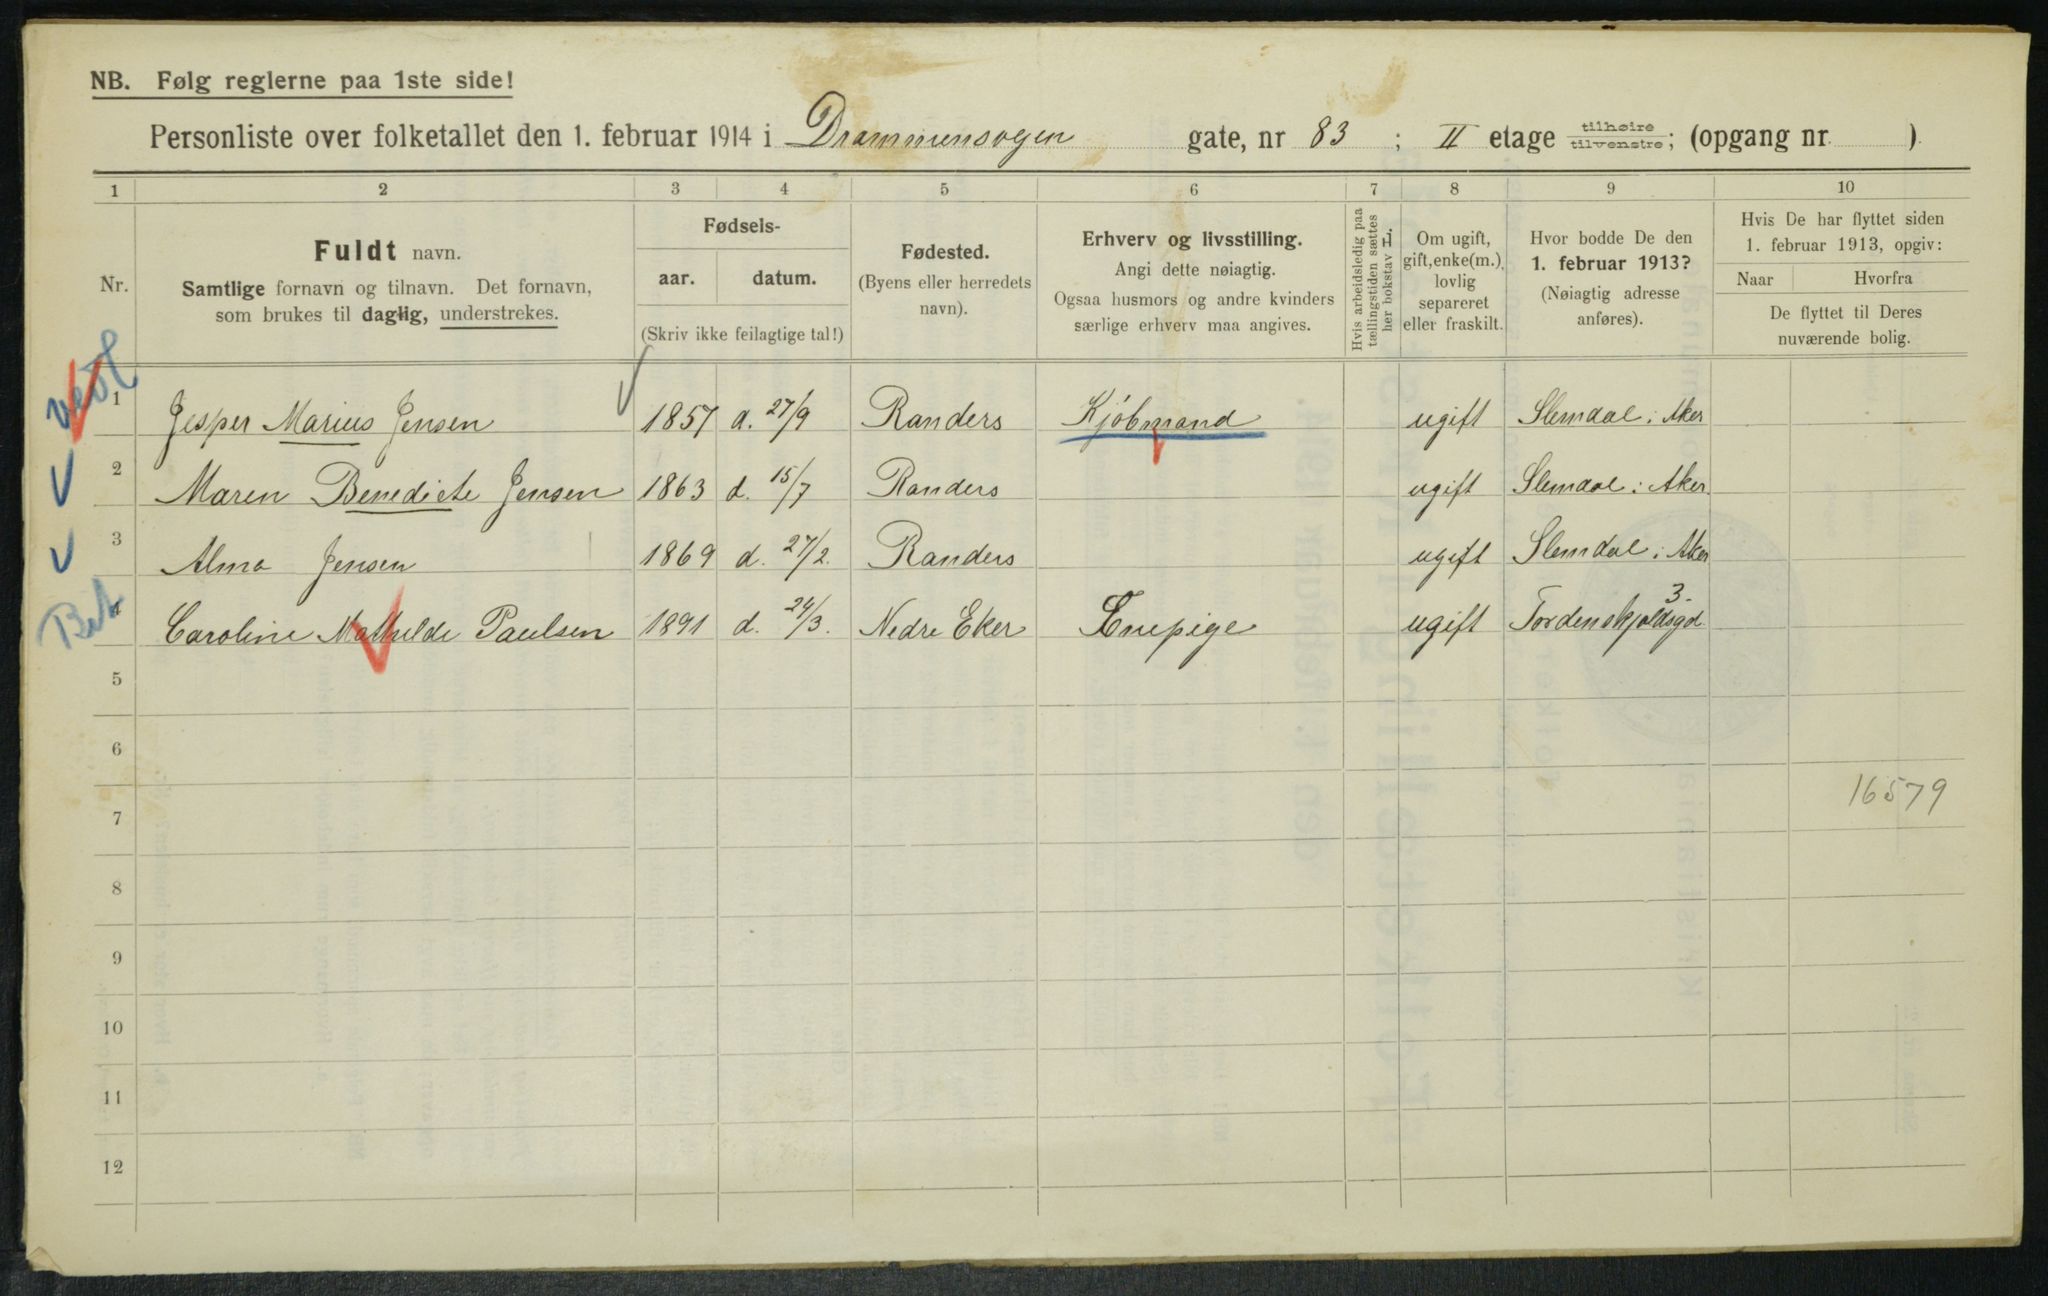 NB. Følg reglerne paa 1ste side!
Personliste over folketallet den 1. februar 1914 i Drammensvejen gate, nr 83 ; II etage tilhøire tilvenstre; (opgang nr. ).
1 2 3 4 5 6 7 8 9 10
Nr.
Fuldt navn.
Samtlige fornavn og tilnavn. Det fornavn,
som brukes til daglig, understrekes.
Fødsels-
aar. datum.
(Skriv ikke feilagtige tal!)
Fødested.
(Byens eller herredets
navn).
Erhverv og livsstilling.
Angi dette nøiagtig.
Ogsaa husmors og andre kvinders
særlige erhverv maa angives.
Hvis arbeidsledig paa
tællingstiden sættes
her bokstav L.
Om ugift,
gift, enke(m.),
lovlig
separeret
eller fraskilt.
Hvor bodde De den
1. februar 1913?
(Nøiagtig adresse
anføres).
Hvis De har flyttet siden
1. februar 1913, opgiv:
Naar Hvorfra
De flyttet til Deres
nuværende bolig.
1 Jesper Marius Jensen 1857 d. 27/9 Randers Kjöbmand ugift Slemdal i Aker
2 Maren Benedicte Jensen 1863 d. 15/7 Randers ugift Slemdal i Aker.
3 Alma Jensen 1869 d. 27/2. Randers ugift Slemdal i Aker
4 Caroline Mathilde Paulsen 1891 d. 24/3. Nedre Eker Enepige ugift Tordenskjoldsgd 3.
5
6
7
16579
8
9
10
11
12